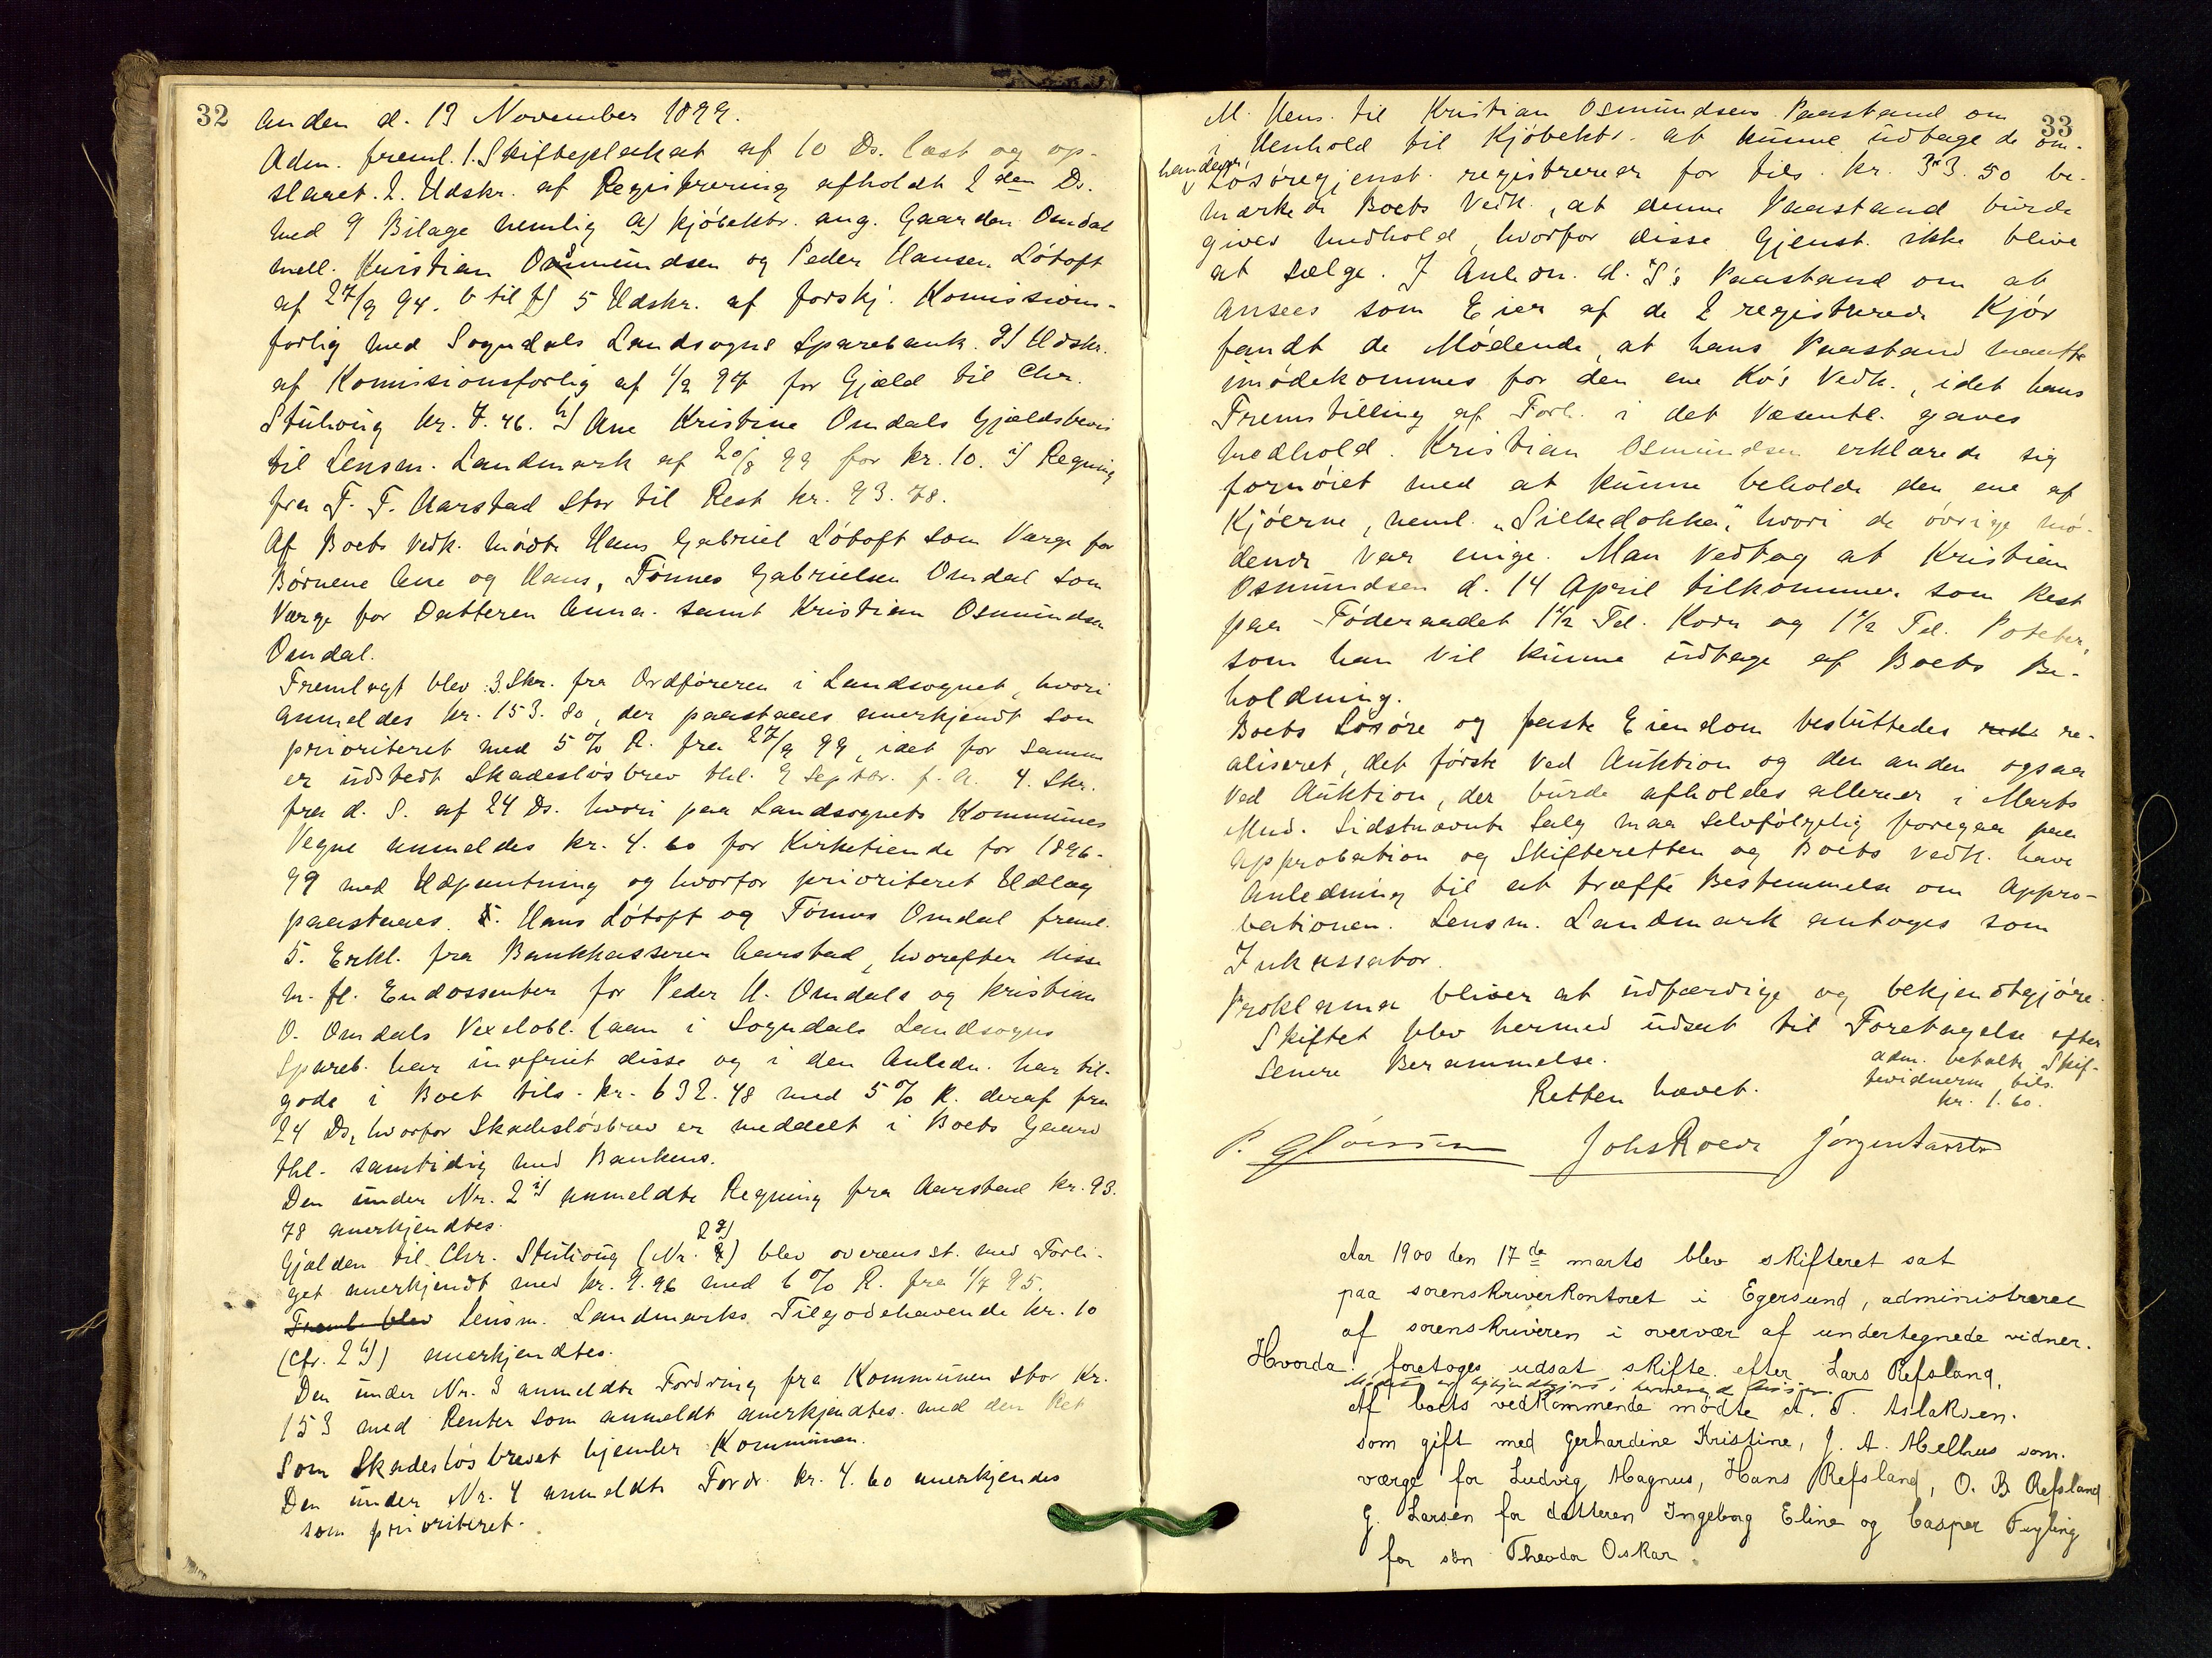 32
anden d. 13 November 1899.
Adm. freml. 1. Skifteplakat af 10 Ds. læst og op-
slaaet. 2. Udskr. af Registrering afholdt 2den Ds.
med 9 Bilage nemlig a) Kjöbektr. ang. Gaarden Omdal
mell. Kristian Osmundsen og Peder Hansen Lötoft
af 27/9 94. b til f) 5 Udskr. af forskj. Komissions-
forlig med Sogndals Landsogns Sparebank. g) Udskr.
af Komisionsforlig af 1/2 97 for Gjæld til Chr.
kr. 7.46. h) Ane Kristine Omdals Gjældsbevis
til Lensm. Landmark af 20/8 99 for kr. 10. i) Regning
fra F. F. Aarstad stor til Rest kr. 93.78.
Af Boets Vedk. mödte Hans Gabriel Lötoft som Værge for
Börnene Ane og Hans, Tönnes Gabrielsen Omdal som
Værge for Datteren Anna. samt Kristian Osmundsen
Omdal.
Fremlagt blev 3. Skr. fra Ordföreren i Landsognet, hvori
anmeldes kr. 153.80, der paastaaes anerkjendt som
prioriteret med 5% R. fra 27/9 99, idet for samme
er udstedt Skadeslösbrev thl. 9 Septbr. f. A. 4. Skr.
fra d. S. af 24 Ds. hvori paa Landsognets Kommunes
Vegne anmeldes kr. 4.60 for Kirketiende for 1896-
99 med Udpantning og hvorfor prioriteret Udlæg
paastaaes. Hans Lötoft og Tönnes Omdal freml.
5. Erkl. fra Bankkasserer Aarstad, hvorefter disse
m. fl. Endossenter for Peder H. Omdals og Kristian
O. Omdals Vexelobl. laan i Sogndals Landsogns
Spareb. har indfriet disse og i den Anledn. har til-
gode i Boet tils. kr. 632.48 med 5% R. deraf fra
24 Ds, hvorfor Skadeslösbrev er meddelt i Boets Gaard
thl. samtidig med Bankens.
Den under Nr. 2 i) anmeldte Regning fra Aarstad kr. 93.
78 anerkjendtes.
2 g)
Gjælden til Chr. (Nr. ) blev overensst. med Forli-
get anerkjendt med kr. 9.96 med 6% R. fra 1/7 95.
Freml. blev Lensm. Landmarks Tilgodehavende kr. 10
(cfr. 2 h)) anerkjendtes.
Den under Nr. 3 anmeldte Fordring fra Kommunen stor kr.
153 med Renter som anmeldt anerkjendtes med den Ret
som Skadeslösbrevet hjemler Kommunen.
Den under Nr. 4 anmeldte Fordr. kr. 4.60 anerkjendes
som prioriteret.
33
M. Hens. til Kristian Osmundsens Paastand om
i Henhold til Kjöbektr. at kunne udtage de om-
handlede
Lösöregjenst. registrerede for tils. kr. 33.50 be-
mærkede Boets Vedk., at denne Paastand burde
gives Medhold, hvorfor disse Gjenst. ikke blive
at sælge. I Anledn. d. S's Paastand om at
ansees som Eier af de 2 registrerede Kjör
fandt de Mödende, at hans Paastand maatte
imödekommes for den ene Ko's Vedk., idet hans
Fremstilling af Forh. i det Væsentl. gaves
Medhold. Kristian Osmundsen erklærede sig
fornöiet med at kunne beholde den ene af
Kjöerne, neml. "Silkedokka", hvori de övrige mö-
dende var enige. Man vedtog at Kristian
Osmundsen d. 14 April tilkommer som Rest
paa Föderaadet 1 1/2 Td. Korn og 1 1/2 Td. Poteter,
som han vil kunne udtage af Boets Be-
holdning.
Boets Lösöre og faste Eiendom besluttedes re-
aliseret, det förste ved Auktion og den anden ogsaa
ved Auktion, der burde afholdes allerede i Marts
Mnd. Sidstnævnte Salg maa selvfölgelig foregaa paa
Approbation og Skifteretten og Boets Vedk. have
Anledning til at træffe Bestemmelse om Appro-
bationen. Lensm. Landmark antoges som
Inkassator.
Proklama bliver at udfærdige og bekjendtgjöre.
Skiftet blev hermed udsat til Foretagelse efter
senere Berammelse.
Adm. betalte Skif-
tevidnerne tils.
kr. 1.60.
Retten hævet.
Johs Roede Jørgen
Aar 1900 den 17de marts blev skifteret sat
paa sorenskriverkontoret i Egersund, administreret
af sorenskriveren i overvær af undertegnede vidner.
Hvorda foretoges udsat skifte efter Lars Refsland,
Mödet er bekjendtgjort i
Af boets vedkommende mödte A. T. Aslaksen
som gift med Gerhardine Kristine, J. A. Melhus som
værge for Ludvig Magnus, Hans Refsland, O. B. Refsland
G. Larsen for datteren Ingeborg Eline og Casper Fugling
for sön Theodor Oskar.